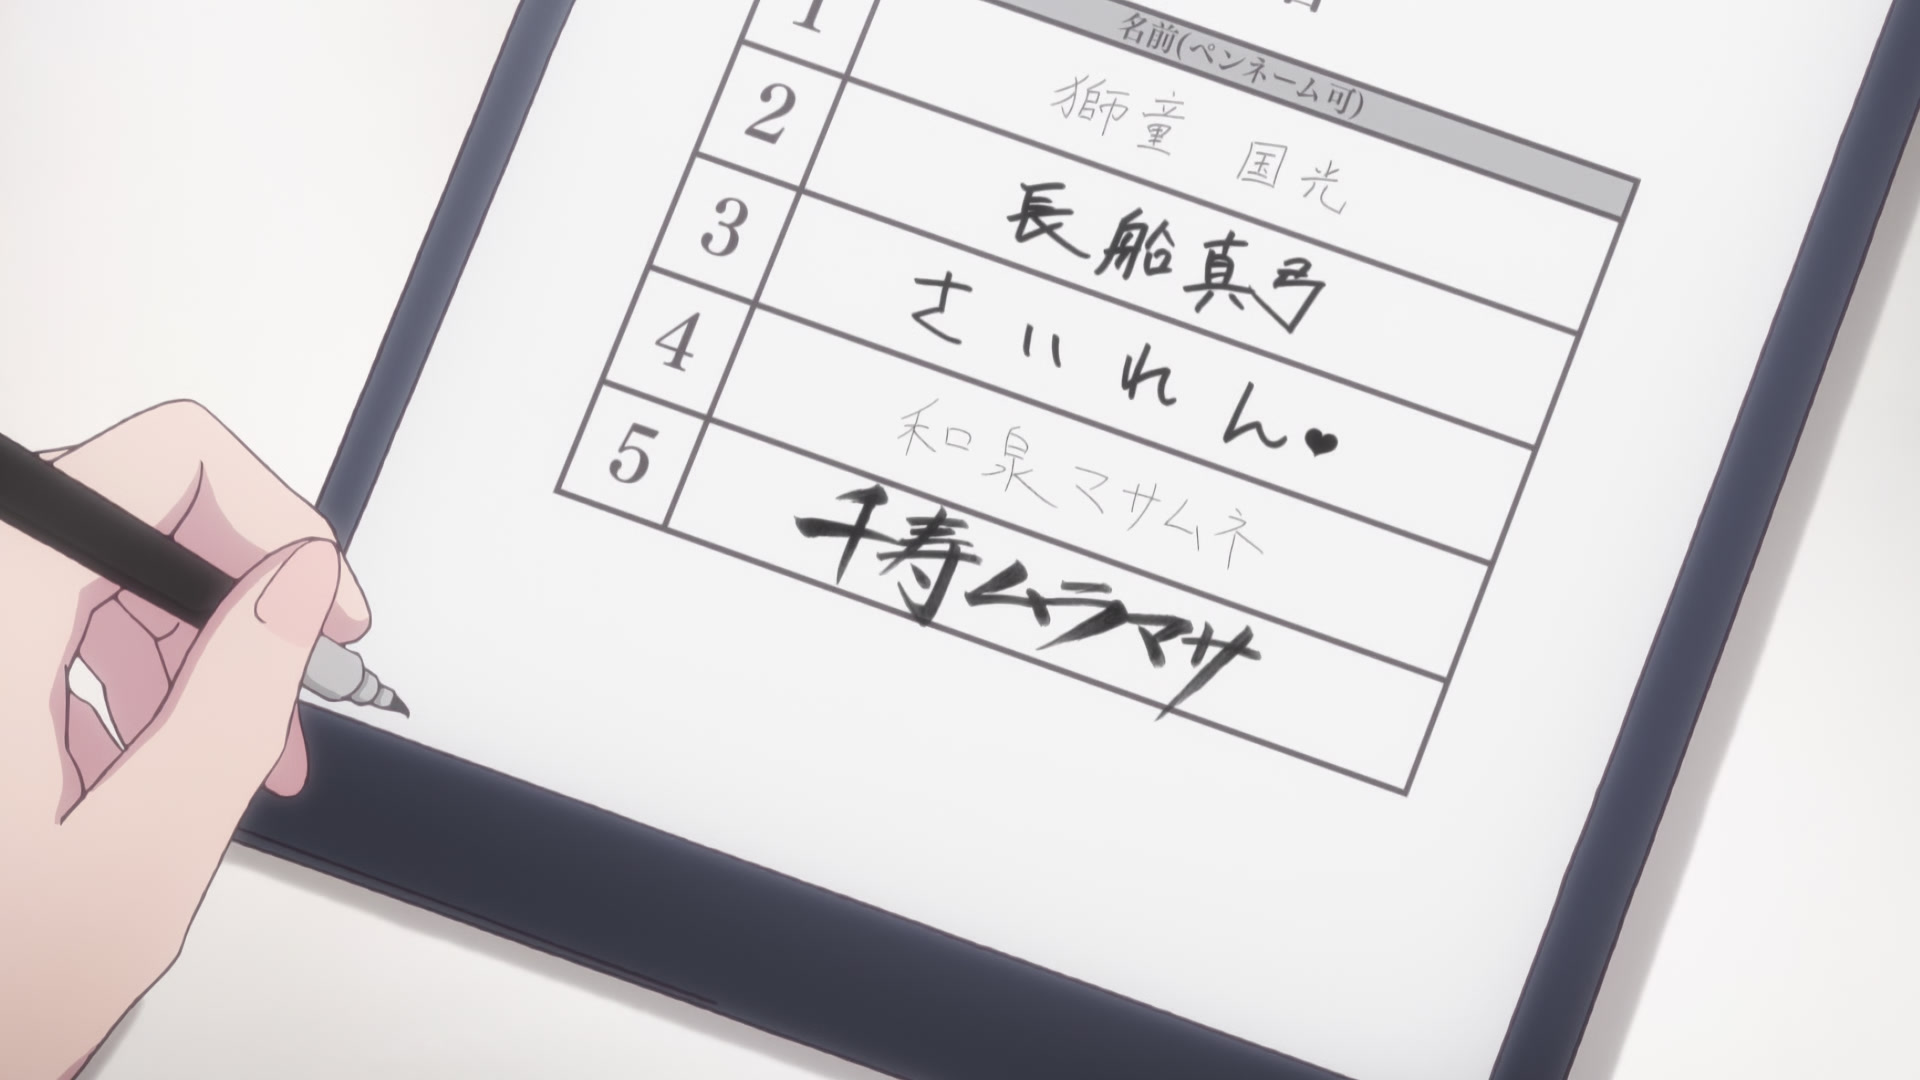 名前(ペンネーム可)
1 獅童 国光
2 長船真弓
3 さいれん♥
4 和泉マサムネ
5 千寿ムラマサ